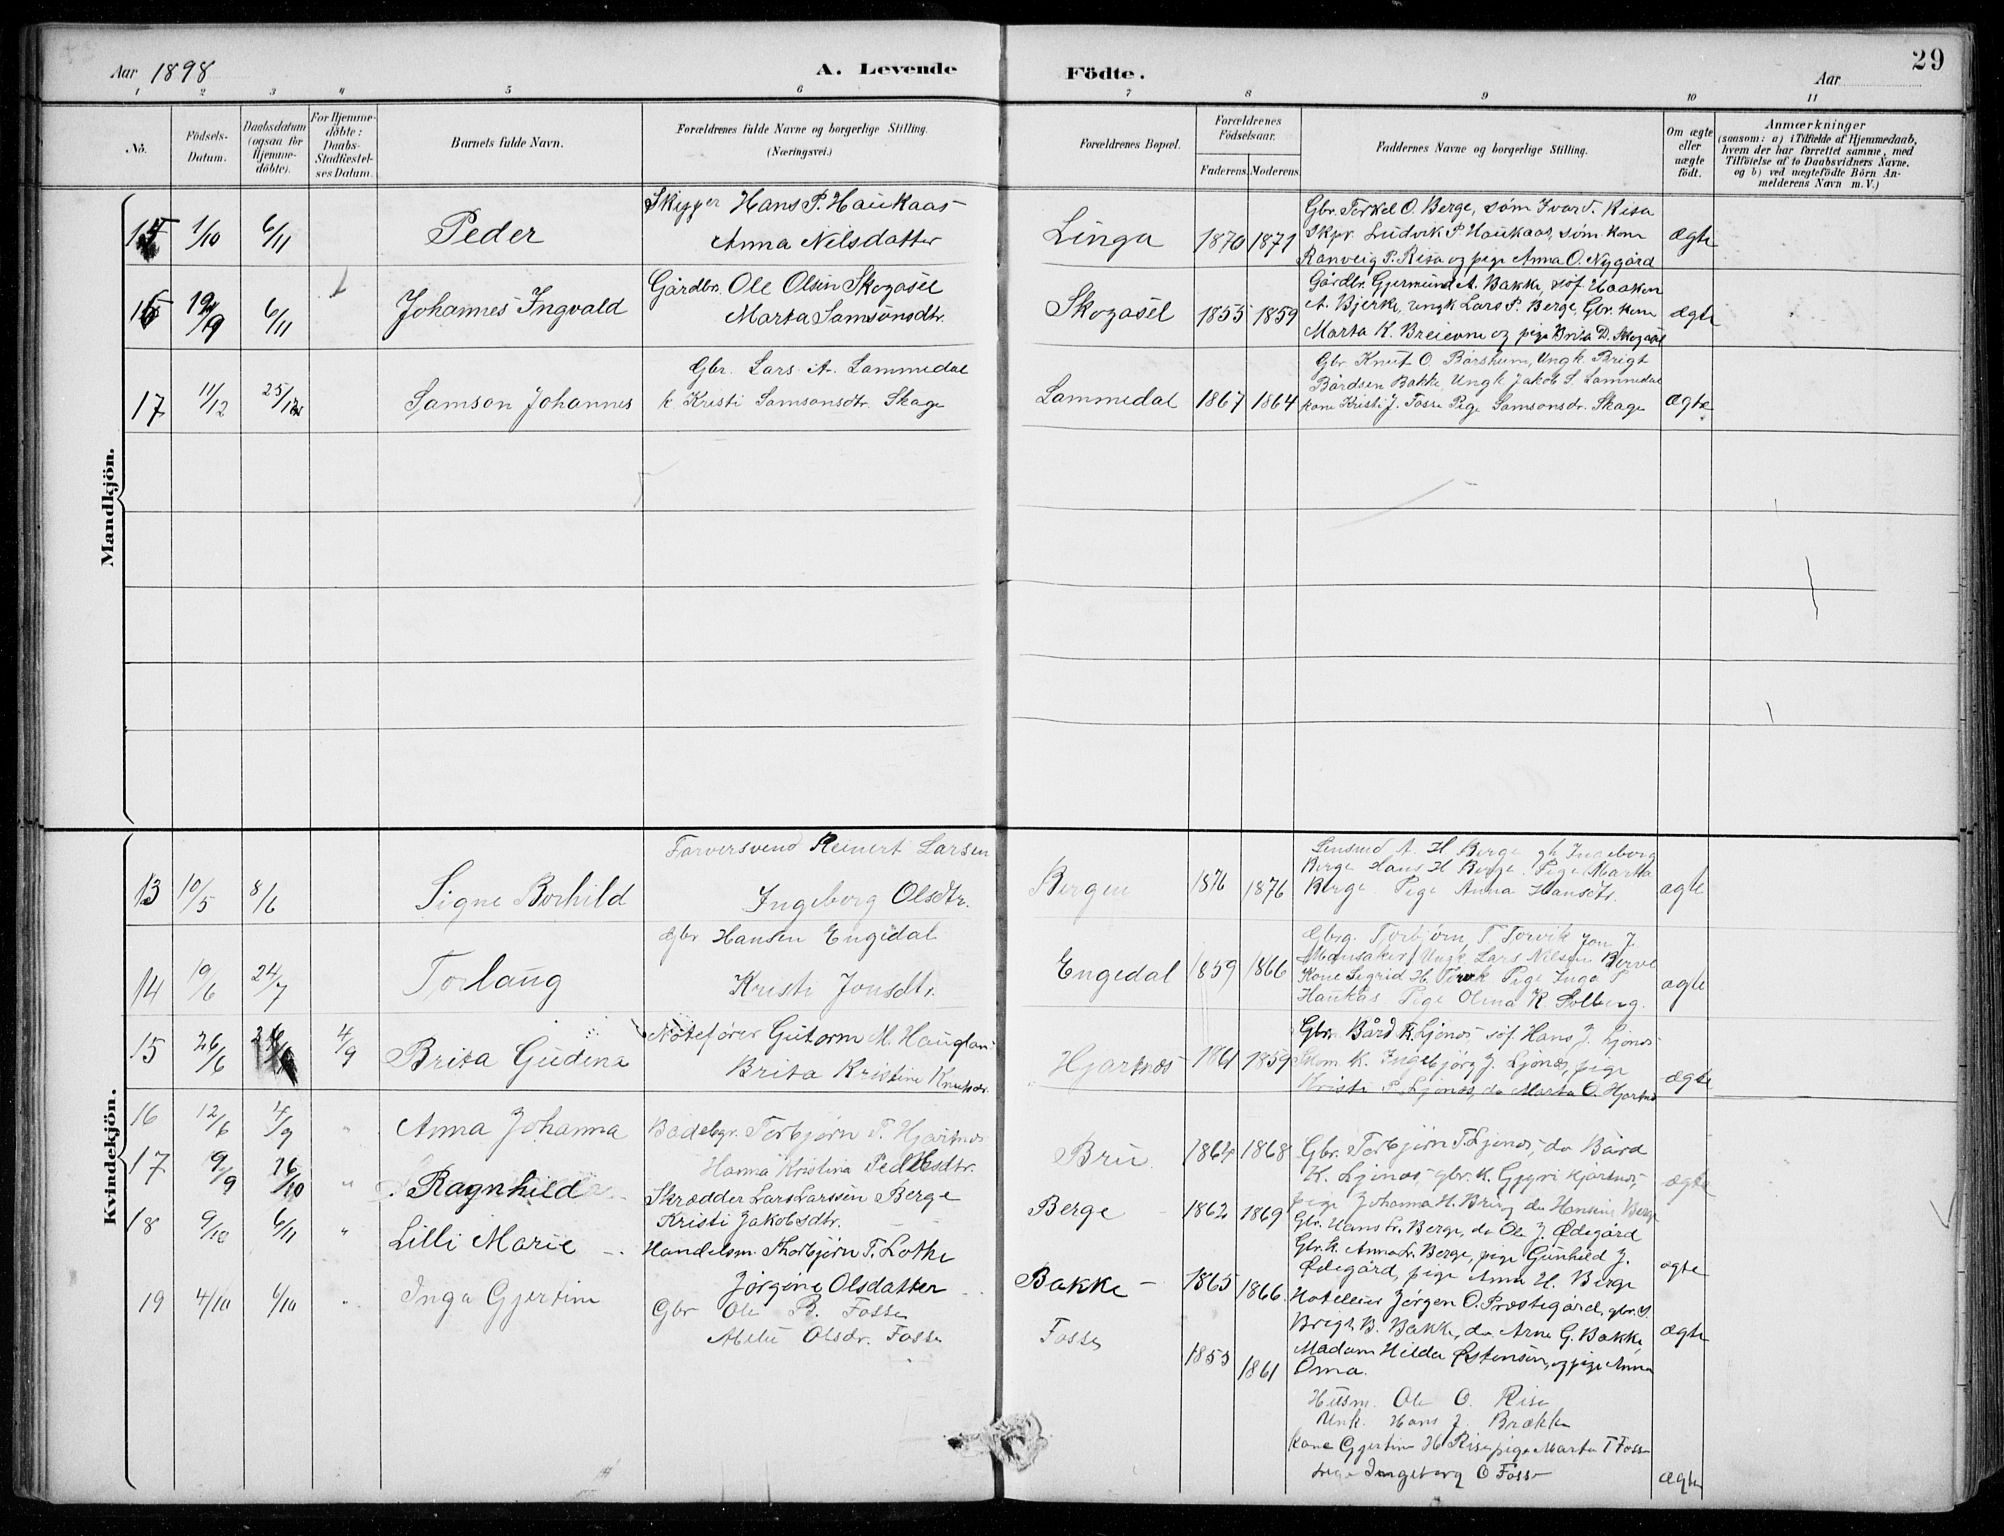 Aar 1898 A. Levende Födte. Aar 29
1 2 3 4 5 6 7 8 9 10 11
No.
Födsels-Datum.
Daabsdatum (ogsaa for Hjemme-döbte).
For Hjemme-döbte: Daabs-Stadfæstel-ses Datum.
Barnets fulde Navn.
Forældrenes fulde Navne og borgerlige Stilling. (Næringsvei.)
Forældrenes Bopæl.
Forældrenes Födselsaar.
Faderens. Moderens.
Faddernes Navne og borgerlige Stilling.
Om ægte eller uægte födt.
Anmærkninger
(saasom: a) i Tilfælde af Hjemmedaab, hvem der har forrettet samme, med Tilföielse af to Daabsvidners Navne. og b) ved uægtefödte Börn An-melderens Navn m. V.)
Mandkjön.
15 1/10 6/11 Peder
Skipper Hans P. Haukaas
Anna Nilsdatter
Linga 1870 1871
Gbr. Torkel O. Berge, søm Ivar T. Risa
Skpr. Ludvik P. Haukaas, søm. kone
Ranveig P. Risa og pige Anna O. Nygård
Ægte
16 19/9 6/11 Johannes Ingvald
Gårdbr. Ole Olsen Skogasel
Marta Samsonsdtr.
Skogasel 1855 1859
Gårdbr. Gjermund A. Bakke, søf Haaken
A. Bjerke, ungk Lars P. Berge, Gbr. kone
Marta K. Breievne og pige Brita D. Skogasel
Ægte
17 11/12 25/12 Samson Johannes
Gbr. Lars A. Lammedal
k. Kristi Samsonsdtr. Skage
Lammedal 1867 1864
Gbr Knut O Børsheim, Ungk. Brigt
Bårdsen Bakke, Ungk Jakob S. Lammedal
kone Kristi J. Fosse Pige Samsonsdr. Skage
Ægte
Kvindekjön.
13 10/5 8/6 Signe Borhild
Farversvend Reinert Larsen
Ingeborg Olsdtr.
Bergen 1876 1876
A. H Berge gk Ingeborg
Berge Hans H Berge. Pige Marta
Berge. Pige Anna Hansdtr.
ægte
14 19/6 24/7 Torlaug
Gbr Hansen Engedal
Kristi Jonsdtr.
Engedal 1859 1866
Gbrg. Torbjørn T Torvik Jon J.
Mansaker, Ungk Lars Nilsen Berve
Kone Sigrid H. Pige Inga P
Haukås Pige Olina K. Solberg.
ægte
15 26/6 4/9 Brita Gudena
Notefører Gutorm M. Haugland
Brita Kristine Knutsdr.
Hjartnæs 1861 1859
Gbr. Bård K. Ljønes, søf. Hans J. Ljønes
k. Ingebjørg J. Ljønes, pige
Kristi P. Ljønes, do Marta O. Hjartnes
Ægte
16 12/6 4/9 " Anna Johanna
Bådebgr. Torbjørn T. Hjartnes
Hanna Kristina Pedersdtr.
Bru 1864 1868
Gbr. Torbjørn T. Ljønes, do Bård
K. Ljønes, gbr. k. Gyyri Hjartnes,
pige Johanna H. Bru, do Hansine Berge
ægte
17 9/9 16/10 " Ragnhild
Skrædder Lars Larssen Berge
Kristi Jakobsdtr.
Berge 1862 1869
Gbr. Hans Lr. Berge, do Ole J. Ødegård
Gbr. k. Anna Lr. Berge, pige Gunhild J.
Ødegård, pige Anna H. Berge
ægte
18 9/10 6/11 " Lilli Marie
Handelsm. Thorbjørn T. Lothe
Jørgine Olsdatter
Bakke 1865 1866.
Hotelleier Jørgen O. Præstegård, gbr. s.
Brigt B. Bakke, do Arne G. Bakke,
Madam Hilda Østensen, og pige Anna
Oma.
ægte
19 4/10 6/10 " Inga Gjertine
Gbr Ole B. Fosse
Olsdr. Fosse
Fosse 1855 1861
Husm. Ole O. Risa
Unk. Hans J. Brække
kone Gjertine H Risa pige Marta T Fosse
pige Ingeborg O Fosse
ægte